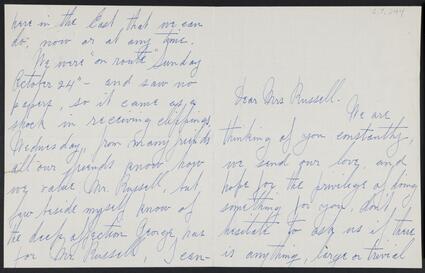 Dear Mrs Russell -
We are
thinking of you constantly,
we send our love, and
hope for the privilege of doing
something for you, don't,
hesitate to ask us if there
is anything, large or trivial
here in the East that we can
do, now or at any time.
We were "en route" Sunday
October 24" - and saw no
papers, so it came as a
shock in receiving clippings
Wednesday, from many
all our friends know how
we value Mr. Russell, but,
few beside myself know of
the deep affection George has
for Mr Russell, I can-